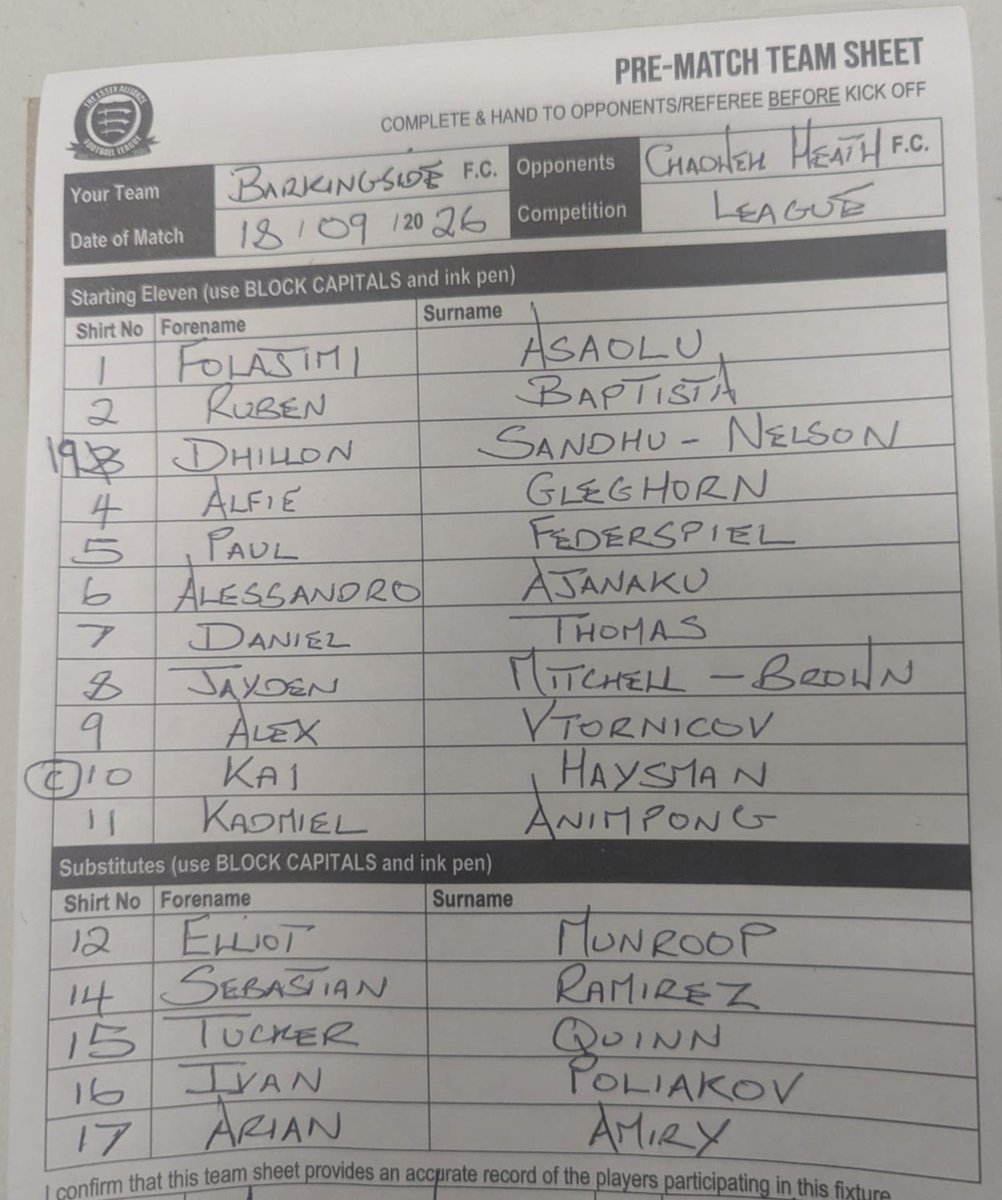 THE ESSEX ALLIANCE
FOOTBALL LEAGUE
PRE-MATCH TEAM SHEET
COMPLETE & HAND TO OPPONENTS/REFEREE BEFORE KICK OFF
Your Team BARKINGSIDE F.C. Opponents CHADWELL HEATH F.C.
Date of Match 18 / 09 / 20 26 Competition LEAGUE
Starting Eleven (use BLOCK CAPITALS and ink pen)
Shirt No Forename Surname
1 FOLASIMI ASAOLU
2 RUBEN BAPTISTA
19 DHILLON SANDHU - NELSON
4 ALFIE GLEGHORN
5 PAUL FEDERSPIEL
6 ALESSANDRO AJANAKU
7 DANIEL THOMAS
8 JAYDEN MITCHELL - BROWN
9 ALEX VTORNICOV
C 10 KAI HAYSMAN
11 KADMIEL ANIMPONG
Substitutes (use BLOCK CAPITALS and ink pen)
Shirt No Forename Surname
12 ELLIOT MUNROOP
14 SEBASTIAN RAMIREZ
15 TUCKER QUINN
16 IVAN POLIAKOV
17 ARIAN AMIRY
I confirm that this team sheet provides an accurate record of the players participating in this fixture